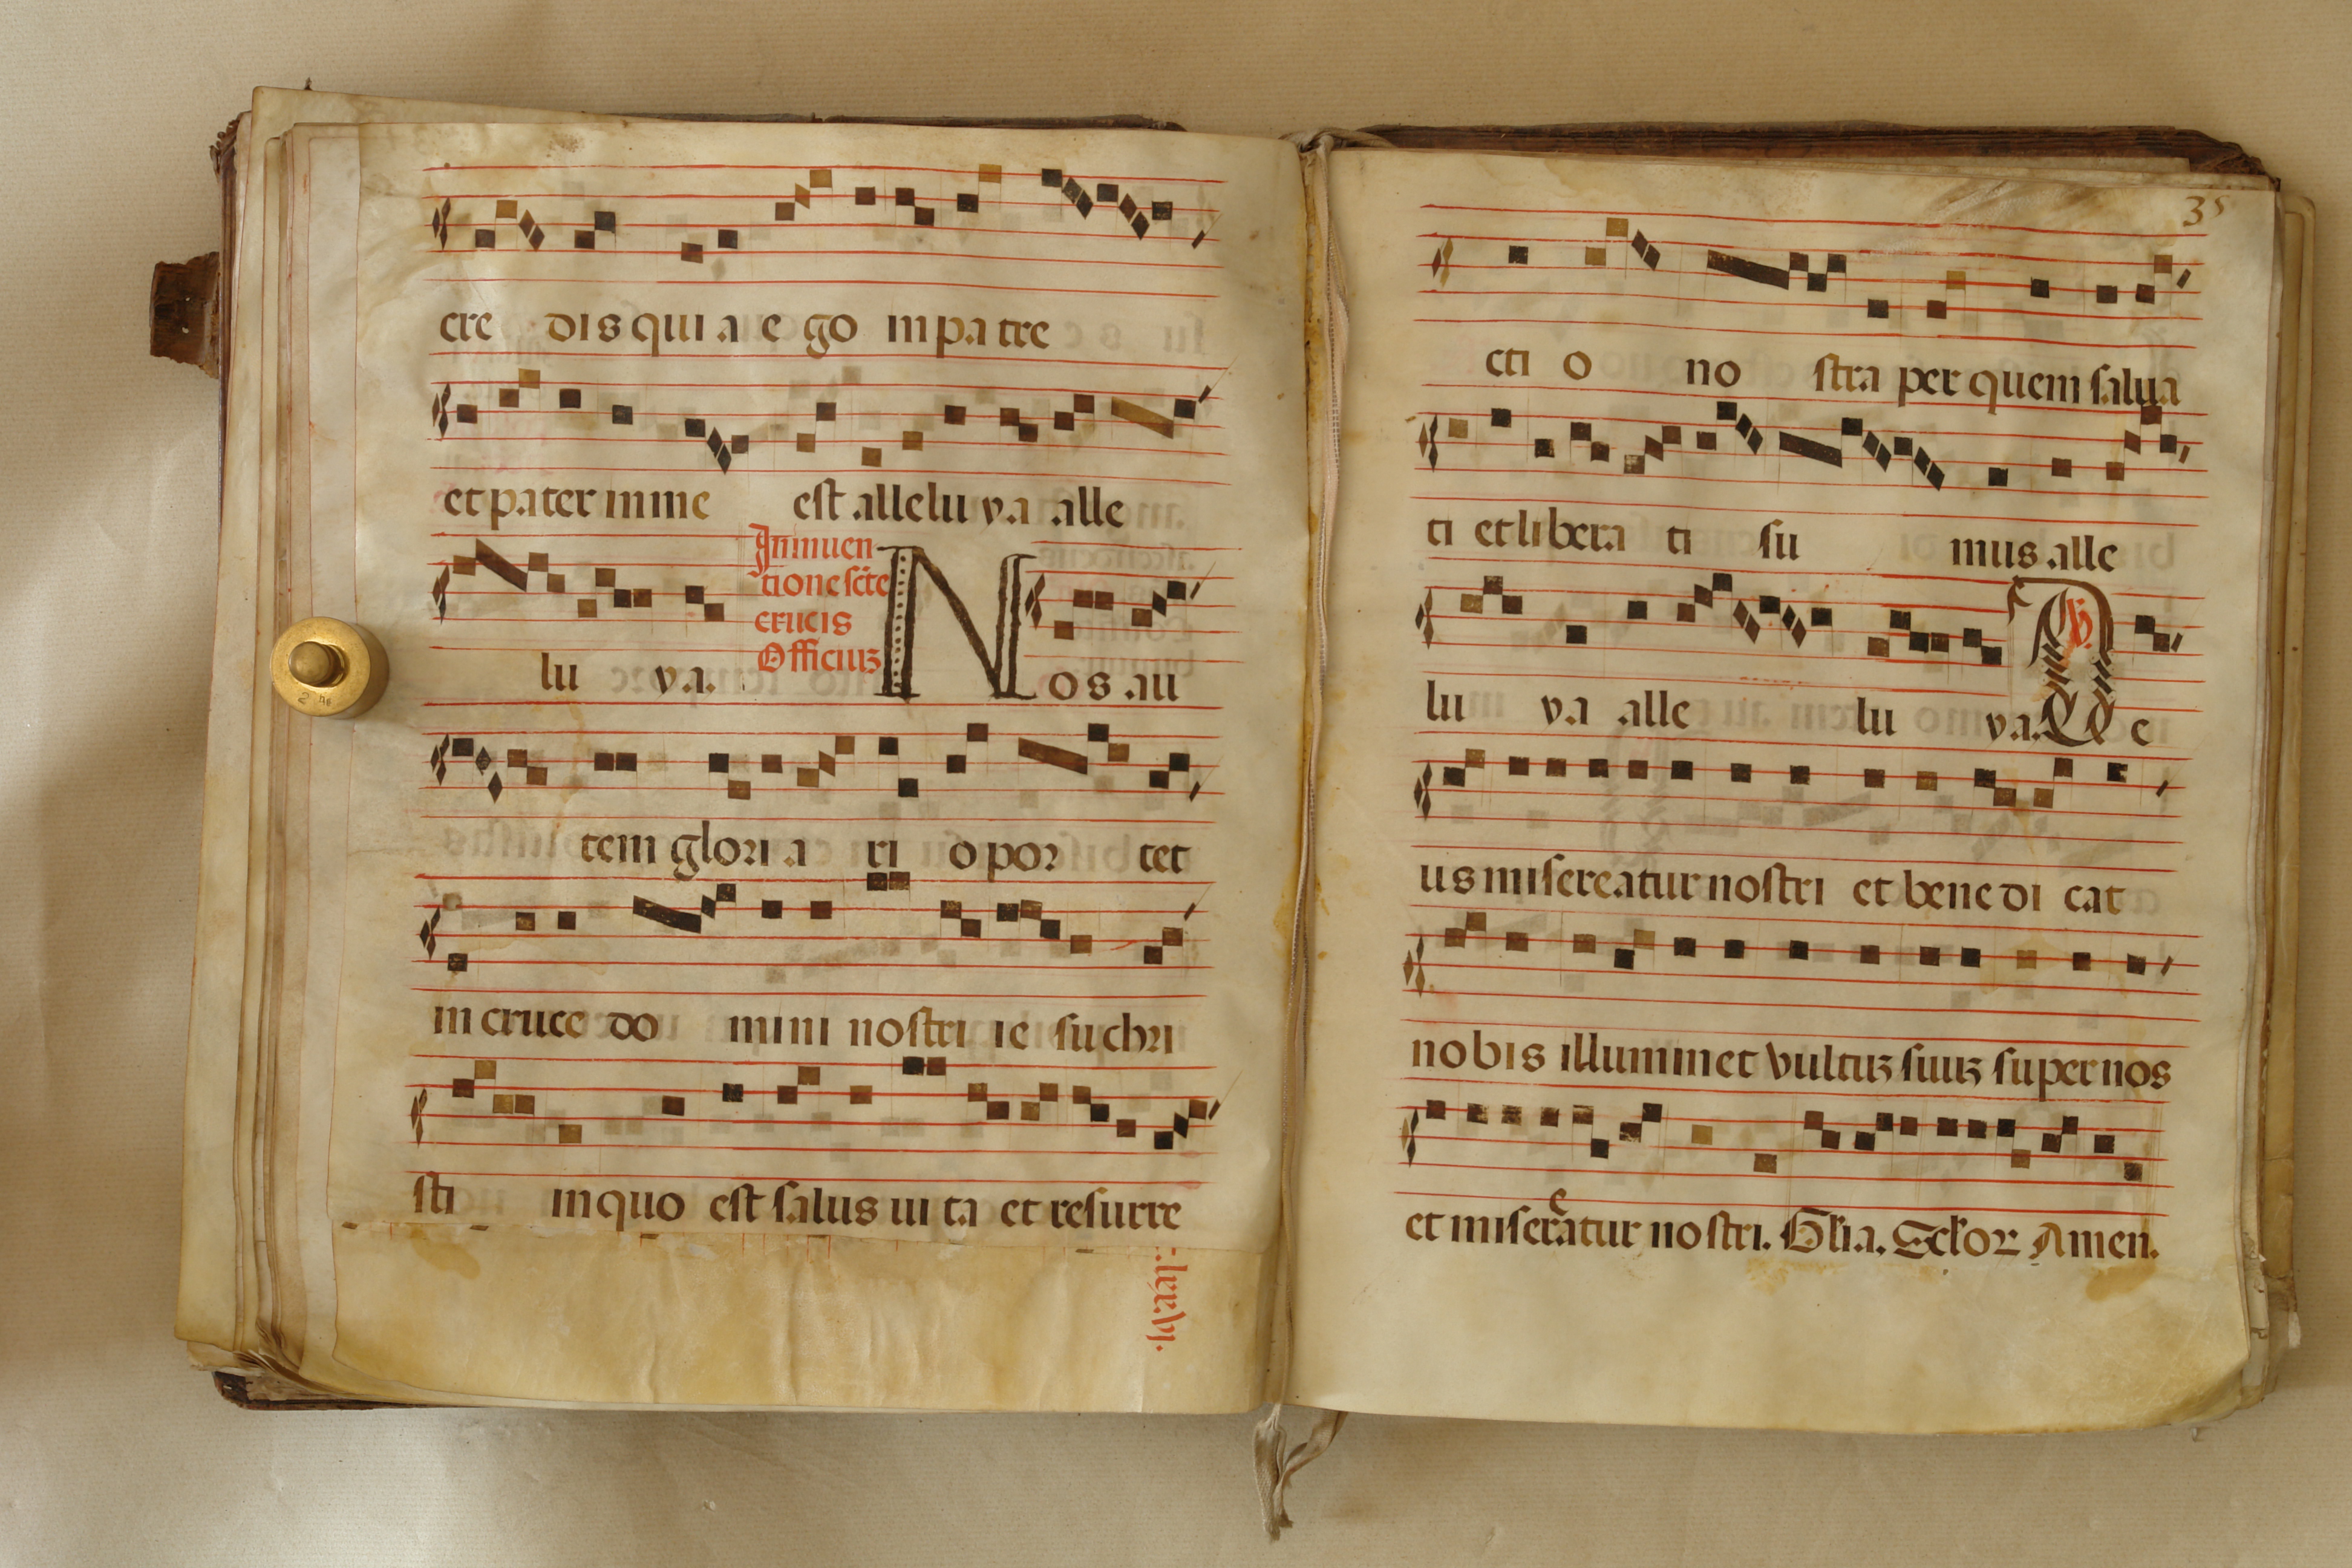 cre dis qui a e go in pa tre
et pater in me est allelu ya alle
lu ya.
In inuen
tione scte
crucis
Officiuꝫ
Nos au
tem glori a ri o por tet
in cruce do mini nostri ie su chri
sti in quo est salus ui ta et resurre
35
cti o no stra per quem salua
ti et libera ti su mus alle
lu ya alle lu ya. De
us misereatur nostri et bene di cat
nobis illuminet vultuꝫ suuꝫ super nos
et misereatur nostri. Glia. Sclor Amen.